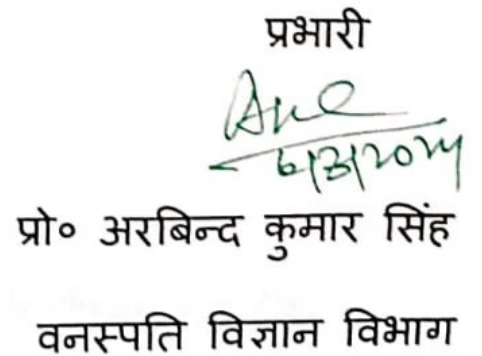 प्रभारी
6/3/2024
प्रो० अरबिन्द कुमार सिंह
वनस्पति विज्ञान विभाग